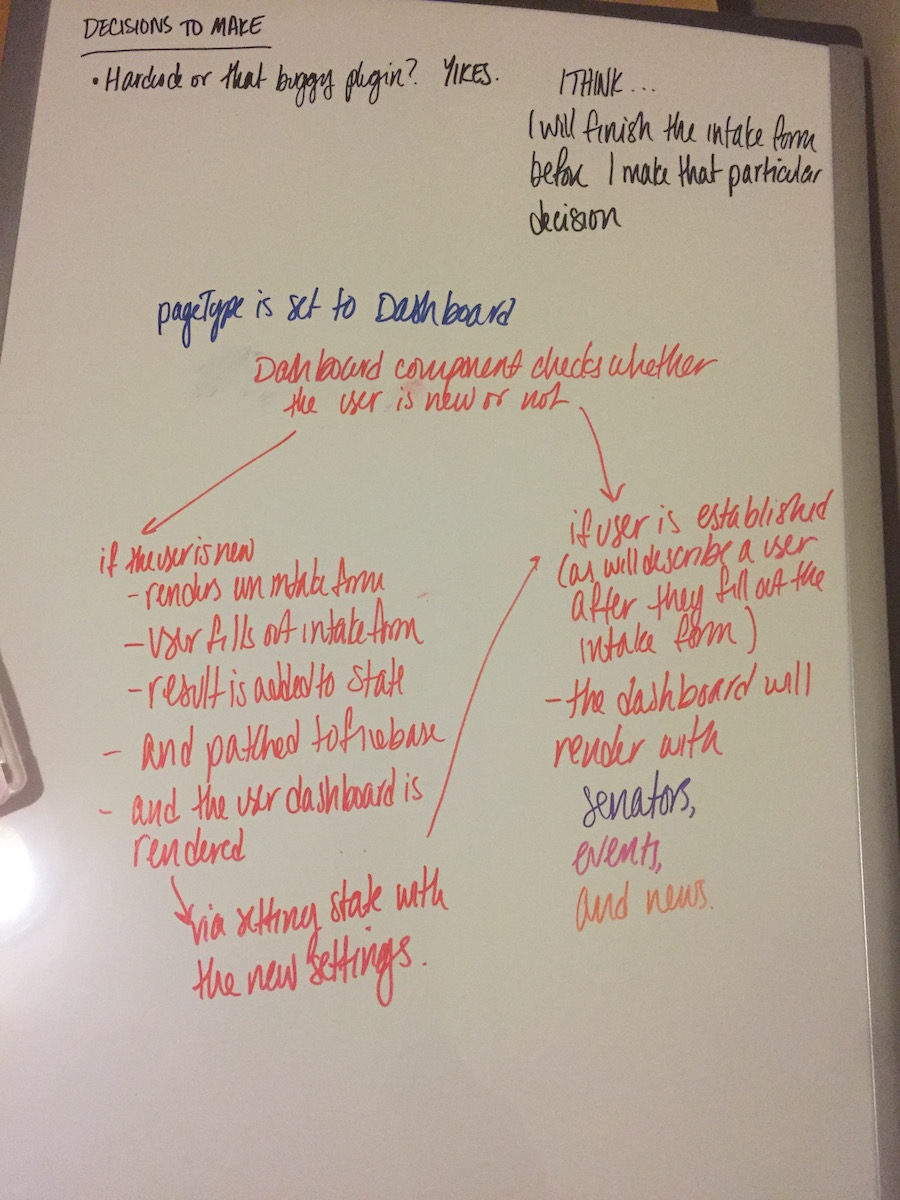 DECISIONS TO MAKE
• Hardcode or that buggy plugin? YIKES.
I THINK...
I will finish the intake form
before I make that particular
decision
pageType is set to Dashboard
Dashboard component checks whether
the user is new or not
if the user is new
- renders an intake form
- user fills out intake form
- result is added to state
- and patched to firebase
- and the user dashboard is
rendered
via setting state with
the new settings.
if user is established
(as will describe a user
after they fill out the
intake form)
- the dashboard will
render with
senators,
events,
and news.